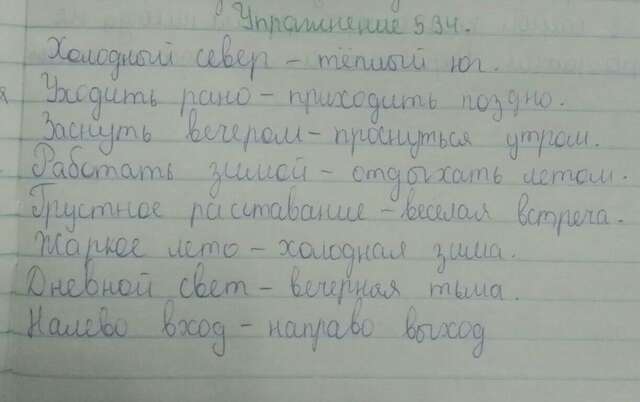 Упражнение 534.
Холодный север – тёплый юг.
Уходить рано – приходить поздно.
Заснуть вечером – проснуться утром.
Работать зимой – отдыхать летом.
Грустное расставание – веселая встреча.
Жаркое лето – холодная зима.
Дневной свет – вечерная тьма.
Налево вход – направо выход